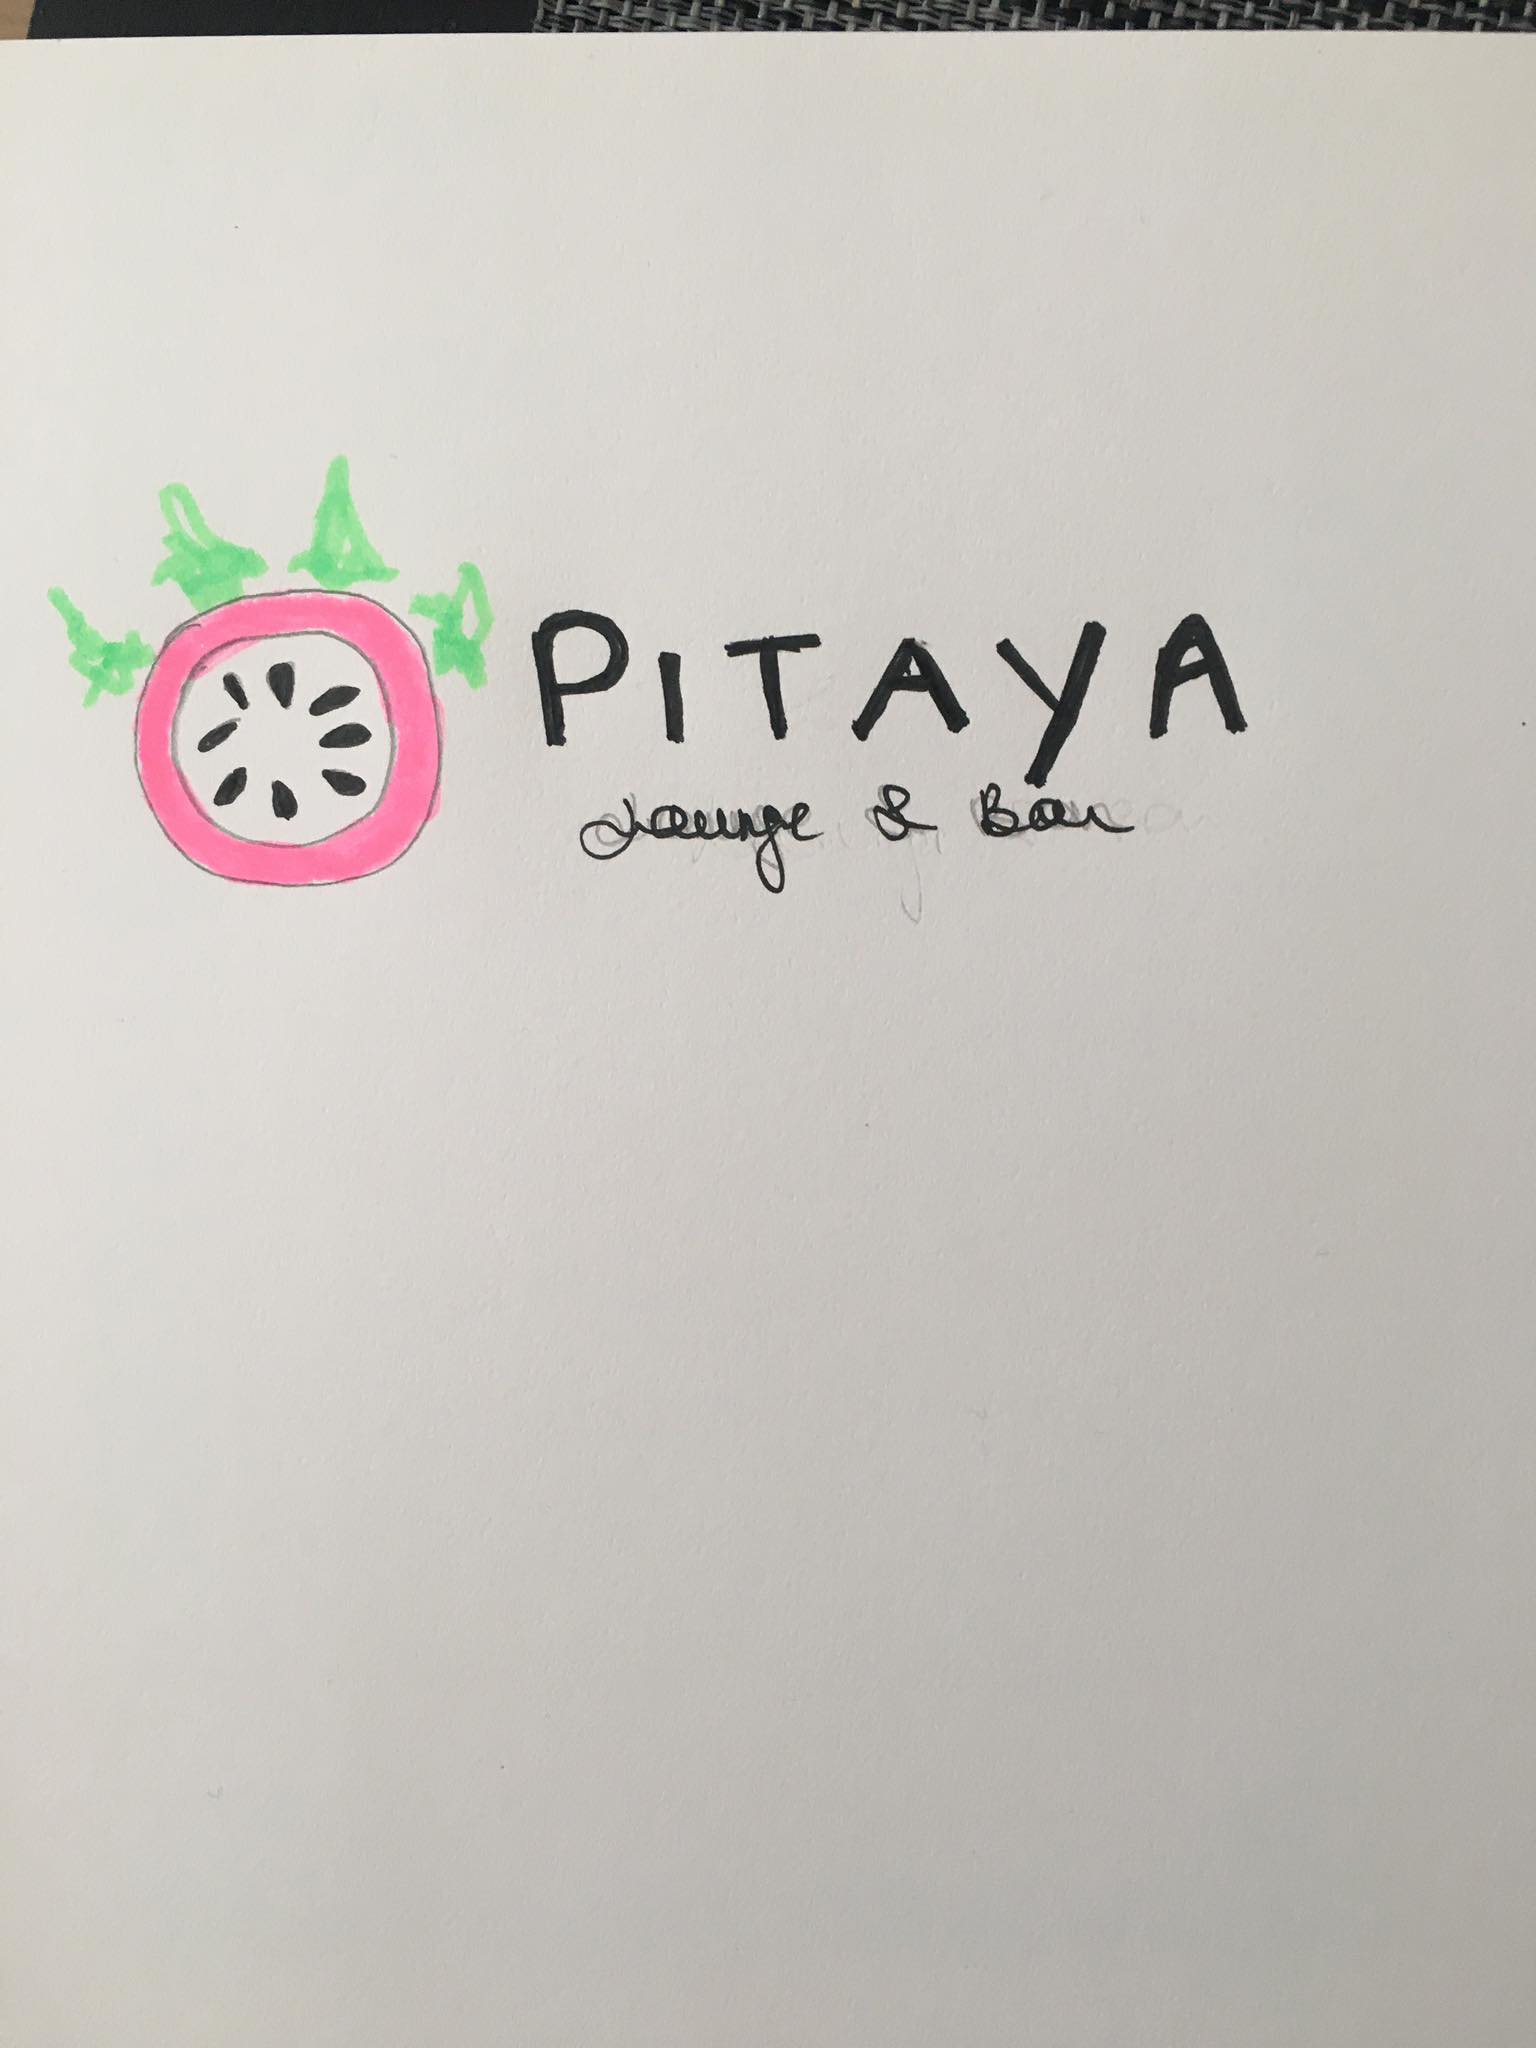 PITAYA
Lounge & Bar